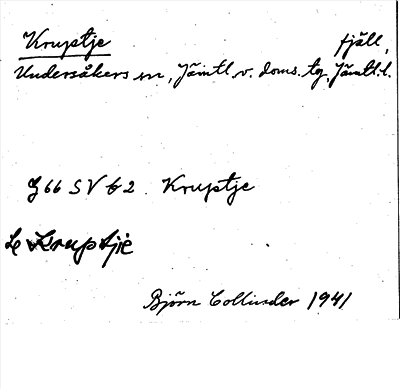 Kruptje fjäll,
Undersåkers sn, Jämtl. v. doms. tg, Jämtl. l.
J 66 SV b 2. Kruptje
Le Kruptjie
Björn Collinder 1941